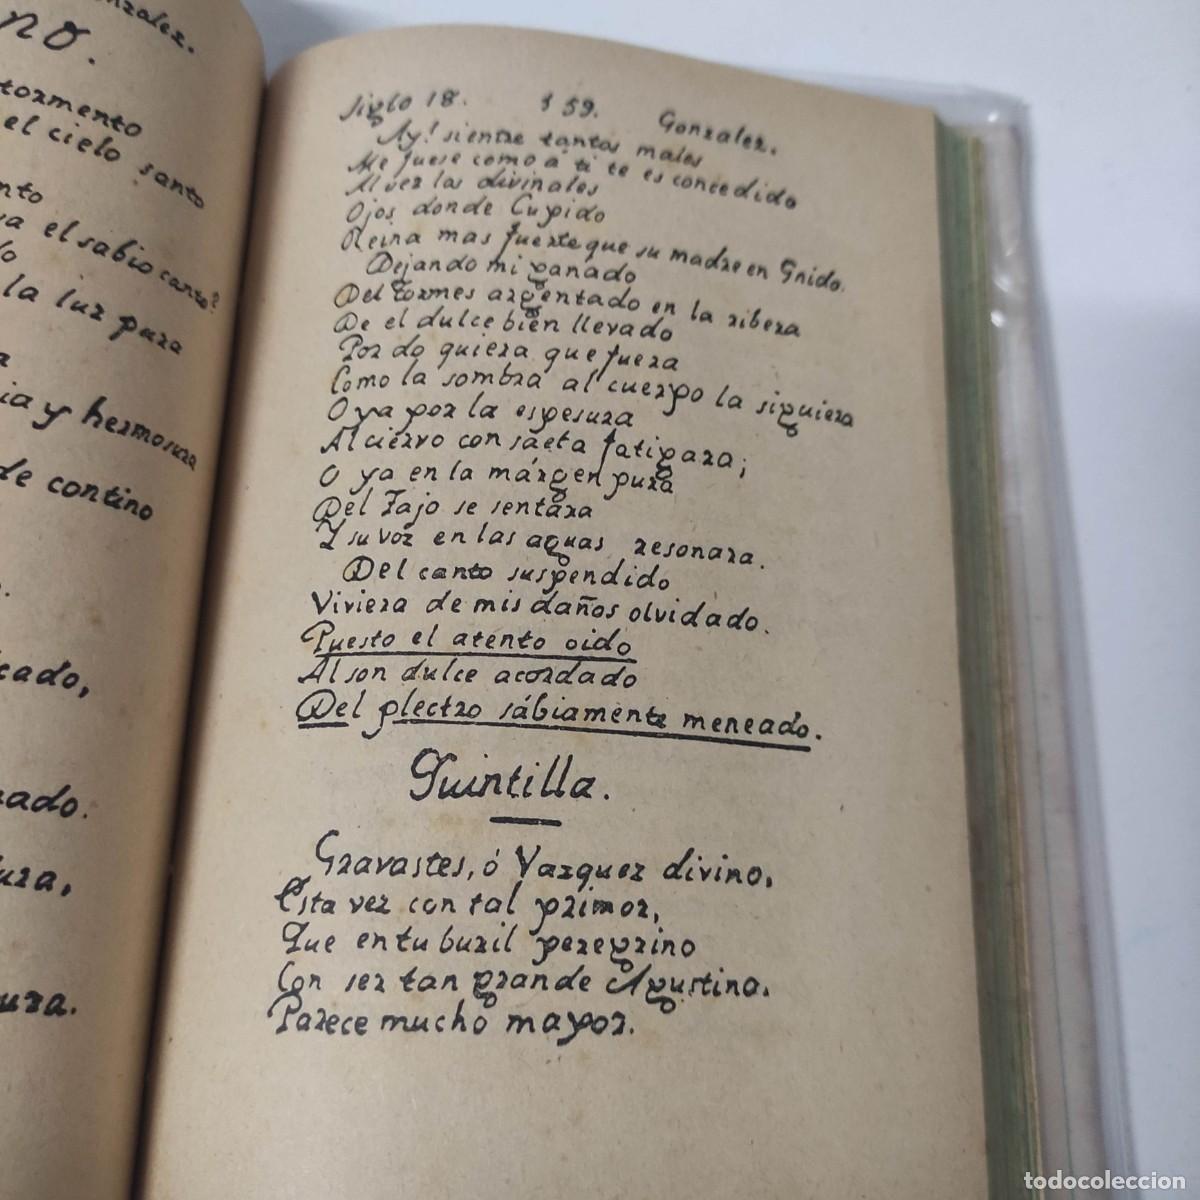 nzalez.
no.
tormento
el cielo santo
nto
va el sabio canto?
lo
la luz pura
a
ia y hermosura
de contino
cado,
nado.
ura,
ura.
Siglo 18. 159. Gonzalez.
Ay! sientre tantos males
Me fuese como á ti te es concedido
Al ver los divinales
Ojos donde Cupido
Reina mas fuerte que su madre en Gnido.
Dejando mi ganado
Del Tormes argentado en la ribera
De el dulce bien llevado
Por do quiera que fuera
Como la sombra al cuerpo la siguiera
O ya por la espesura
Al ciervo con saeta fatigara;
O ya en la márgen pura
Del Tajo se sentara
Y su voz en las aguas resonara.
Del canto suspendido
Viviera de mis daños olvidado.
Puesto el atento oido
Al son dulce acordado
Del plectro sábiamente meneado.
Quintilla.
Gravastes, ó Vazquez divino,
Esta vez con tal primor,
Que en tu buril peregrino
Con ser tan grande Agustino,
Parece mucho mayor.
todocoleccion